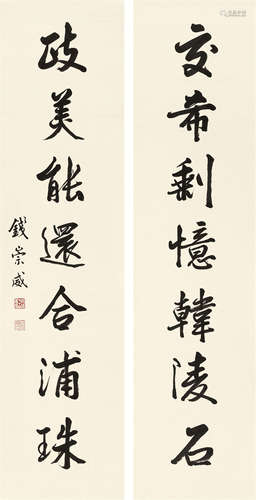 交希剩憶韓陵石
政美能還合浦珠
錢崇威